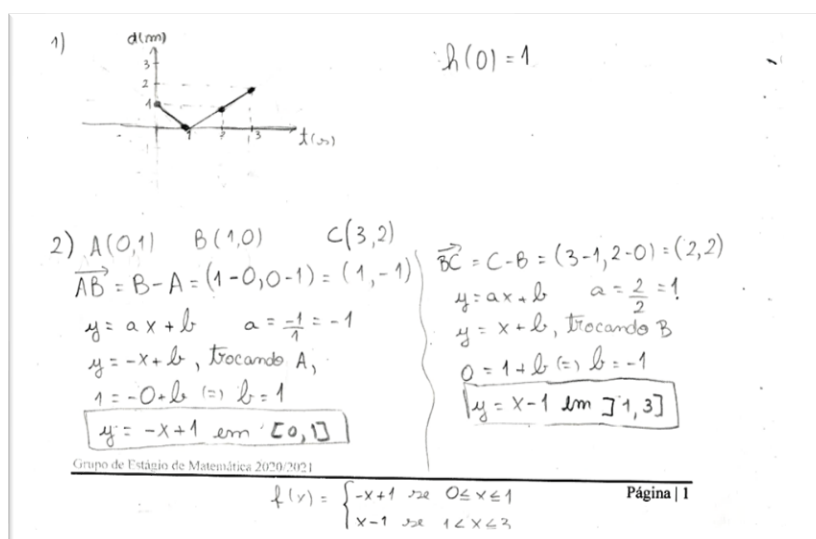 1) d(m) h(0) = 1
3
2
1
1 2 3 t(s)
2) A(0,1) B(1,0) C(3,2)
AB = B-A = (1-0,0-1) = (1,-1)
y = ax + b a = -1/1 = -1
y = -x + b, trocando A,
1 = -0 + b (=) b = 1
y = -x+1 em [0,1]
BC = C-B = (3-1,2-0) = (2,2)
y = ax + b a = 2/2 = 1
y = x + b, trocando B
0 = 1 + b (=) b = -1
y = x-1 em ]1,3]
Grupo de Estágio de Matemática 2020/2021
Página | 1
f(x) = { -x+1 se 0 ≤ x ≤ 1
x-1 se 1 < x ≤ 3